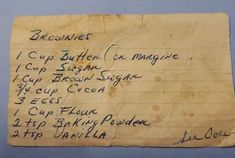 BROWNIES
1 Cup Butter (or margine
1 Cup Sugar
1 Cup Brown Sugar
3/4 cup Cocoa
3 EGGS
1 Cup Flour
2 tsp Baking Powder
2 tsp Vanilla
See Over